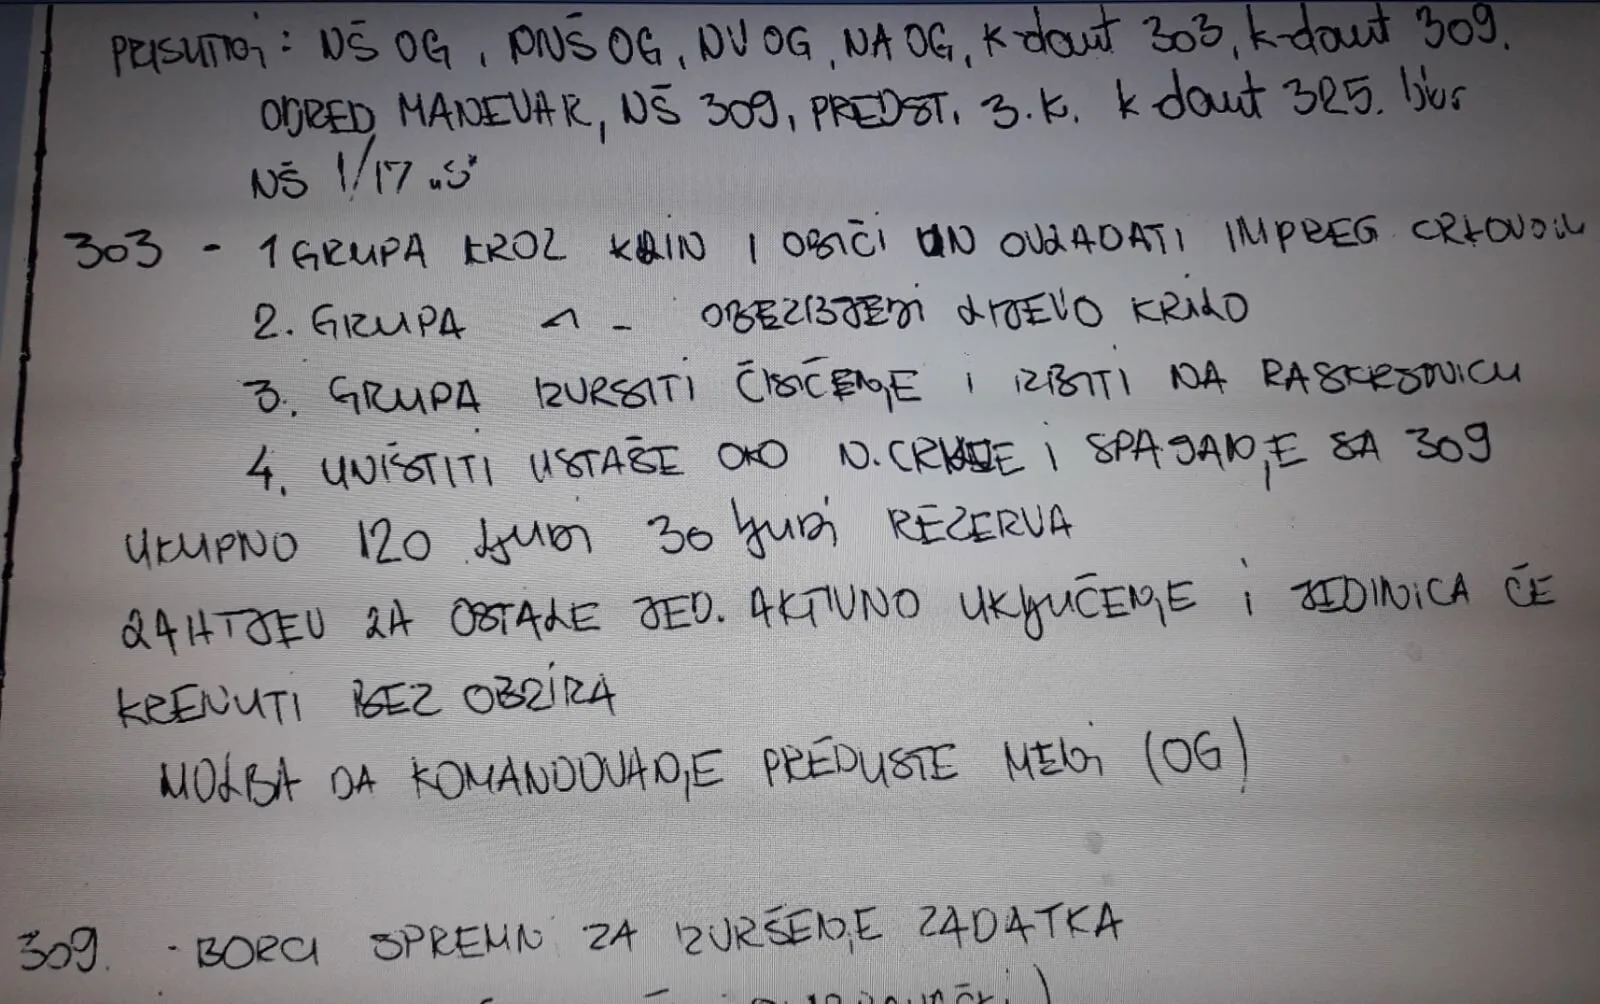 PRISUTNI: NŠ OG, PNŠ OG, NV OG, NA OG, k-dant 303, k-dant 309,
ODRED MANEVAR, NŠ 309, PREDST. 3.K. k dant 325.
NŠ 1/17 „S"
303 - 1 GRUPA KROZ I OBIĆI OVLADATI IMPREG
2. GRUPA - OBEZBJEDI LIJEVO KRILO
3. GRUPA IZVRSITI ČIŠĆENJE I IZBITI NA RASKRSNICU
4. UNIŠTITI USTAŠE OKO N. CRKVE I SPAJANJE SA 309
UKUPNO 120 ljudi 30 ljudi REZERVA
ZAHTJEV ZA OSTALE JED. AKTIVNO UKLJUČENJE I JEDINICA ĆE
KRENUTI BEZ OBZIRA
MOLBA DA KOMANDOVANJE PREPUSTE MENI (OG)
309. - BORCI SPREMNI ZA IZVRŠENJE ZADATKA